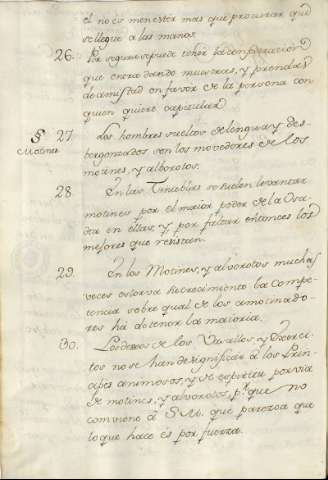 el no es menester mas que procurar que
se llegue a las manos.
26. Por seguro se puede tener la confederacion
que entra dando muestras, y prendas
de amistad en favor de la persona con
quien quiere capitular.
§ Motines
27. Los hombres sueltos de lengua y des-
vergonzados son los movedores de los
motines, y alborotos.
28. En las Tinieblas se suelen levantar
motines por el maior poder de la Osa-
dia en ellas, y por faltar entonces los
mejores que resisten.
29. En los Motines, y alborotos muchas
veces estorva el crecimiento la compe-
tencia sobre qual de los amotinado-
res ha de tener la maioria.
30. Los deseos de los Vasallos, y Exerci-
tos no se han de significar a los Prin-
cipes animosos, y de espiritu por via
de motines, y alborotos, p.r que no
conviene a S. M. que parezca que
lo que hace es por fuerza.